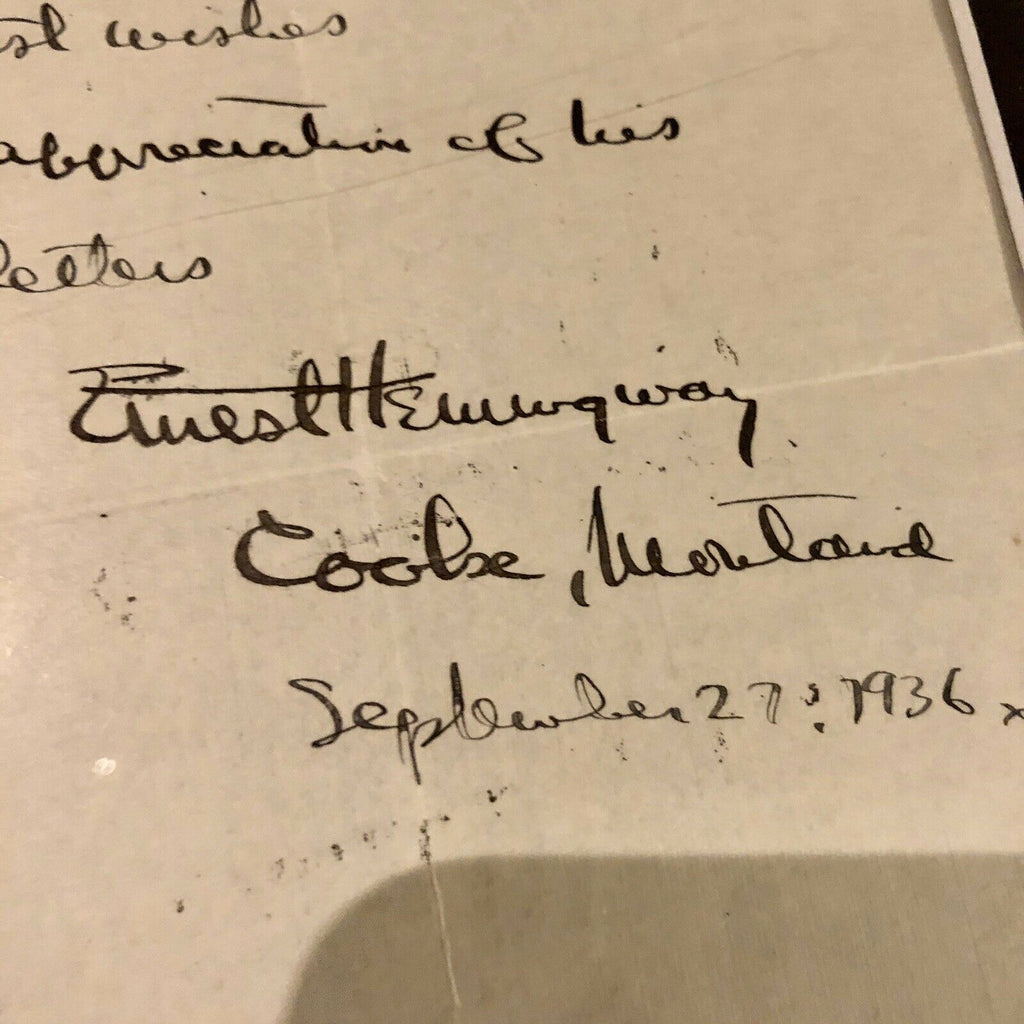 st wishes
appreciation of his
letters
Ernest Hemingway
Cooke, Montana
September 27: 1936